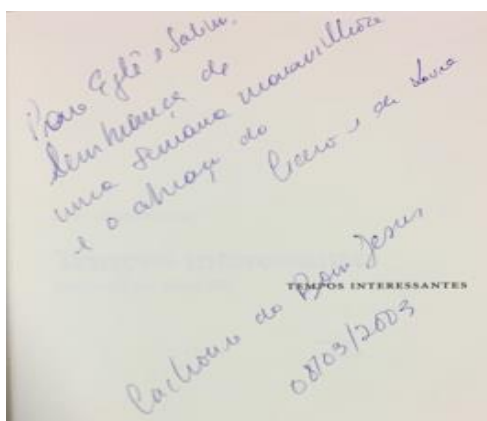 Para Eglê e Salim,
lembrança de
uma semana maravilhosa
e o abraço do
Cícero e da Laura
TEMPOS INTERESSANTES
Cachoeira do Bom Jesus
08/03/2003